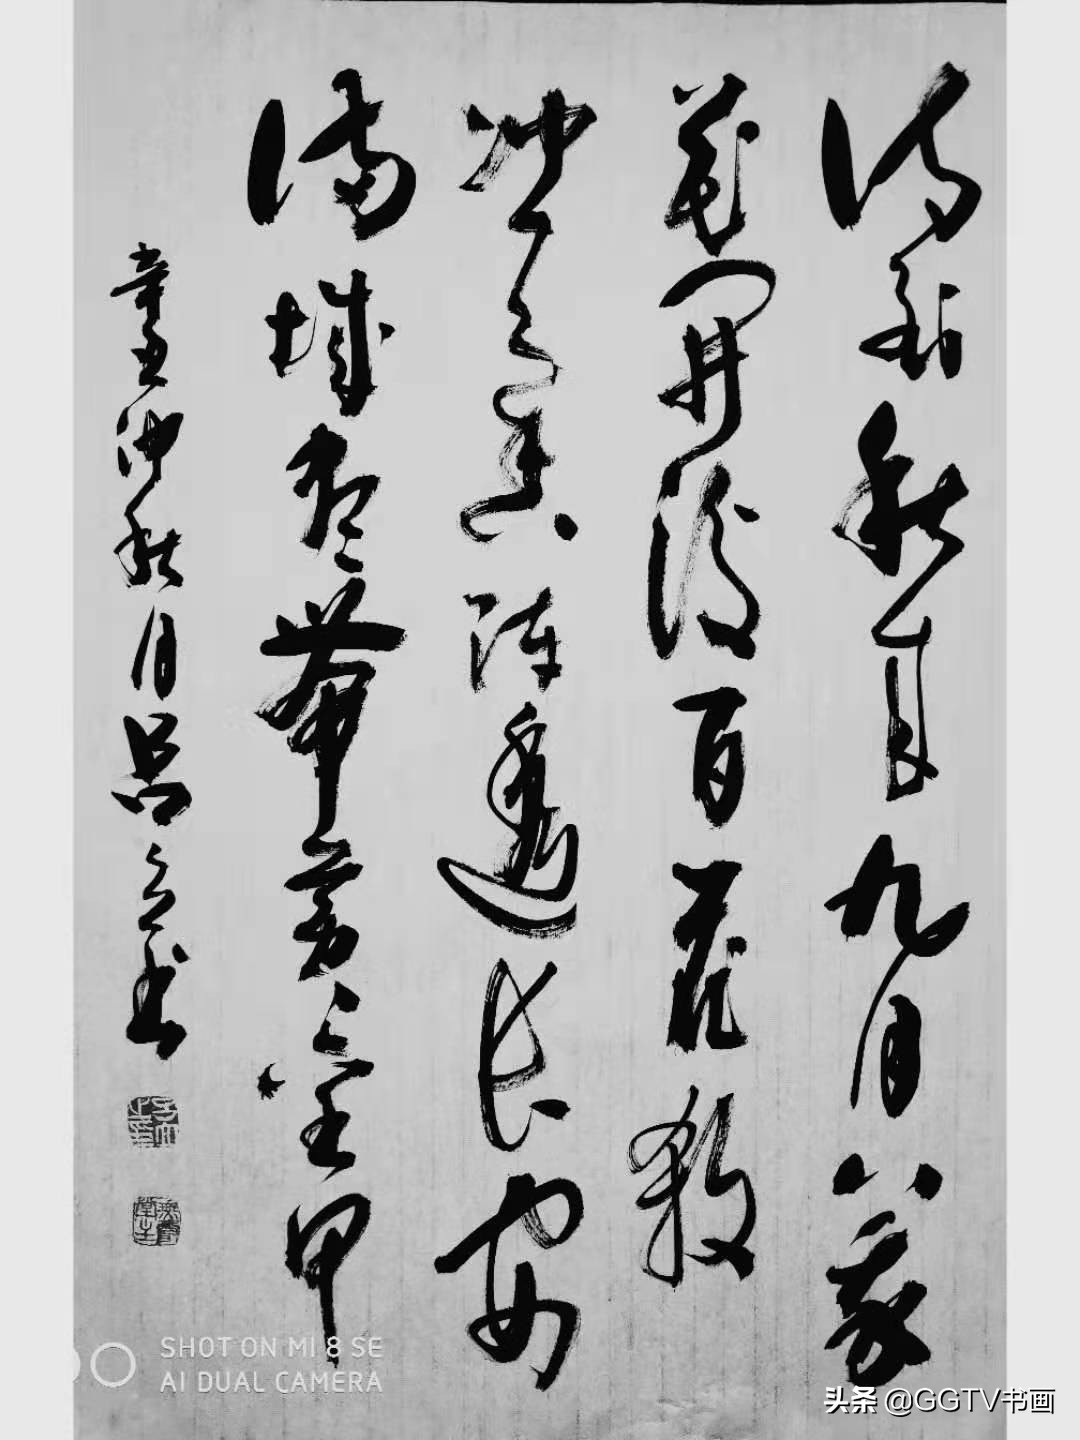 待到秋来九月八我
花開後百花殺
沖天香阵透長安
滿城盡帶黄金甲
辛丑仲秋月吕 书
SHOT ON MI 8 SE
AI DUAL CAMERA
头条 @GGTV书画